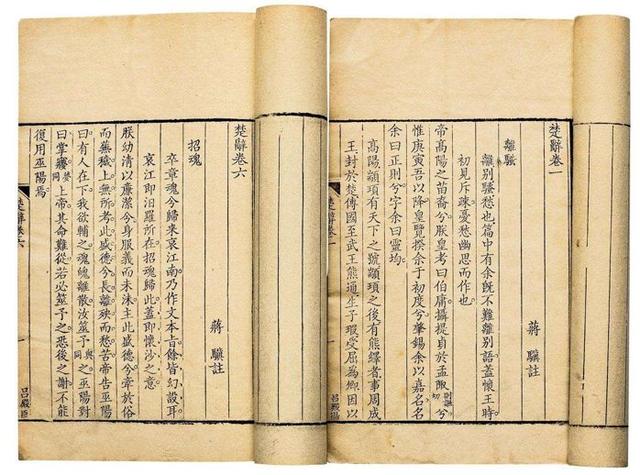 楚辭卷一
蔣 驥註
離騷
離別騷愁也篇中有余旣不難離別語蓋懷王時
初見斥疎憂愁幽思而作也
帝高陽之苗裔兮朕皇考曰伯庸攝提貞于孟陬兮
惟庚寅吾以降皇覽揆余于初度兮肇錫余以嘉名名
余曰正則兮字余曰靈均
高陽顓頊有天下之號顓頊之後有熊繹者事周成
王封於楚傳國至武王熊通生子瑕受屈為卿因以
楚辭卷一
一
楚辭卷六
蔣 驥註
招魂
卒章魂兮歸來哀江南乃作文本旨餘皆幻設耳
哀江卽汨羅所在招魂歸此蓋卽懷沙之意
朕幼清以廉潔兮身服義而未沫主此盛德兮牽於俗
而蕪穢上無所考此盛德兮長離殃而愁苦帝告巫陽
曰有人在下我欲輔之魂魄離散汝筮予與同之巫陽對
曰掌夢同上帝其命難從若必筮予之恐後之謝不能
復用巫陽焉
楚辭卷六
一